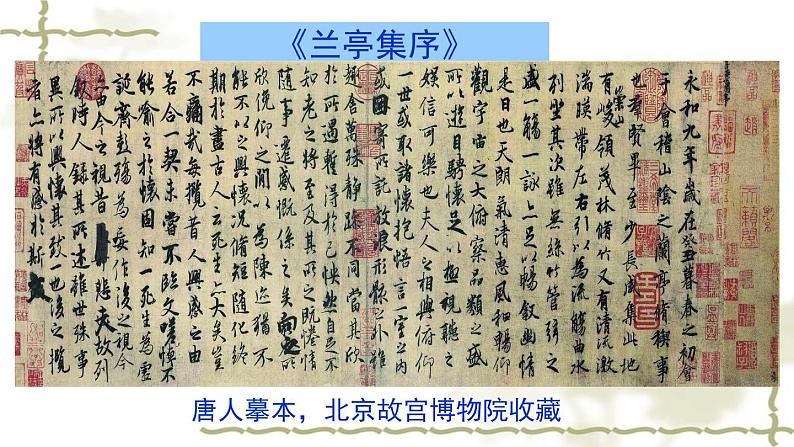 《兰亭集序》
永和九年歲在癸丑暮春之初會
于會稽山陰之蘭亭脩禊事
也群賢畢至少長咸集此地
有崇山峻領茂林脩竹又有清流激
湍暎帶左右引以為流觴曲水
列坐其次雖無絲竹管弦之
盛一觴一詠亦足以暢敘幽情
是日也天朗氣清惠風和暢仰
觀宇宙之大俯察品類之盛
所以遊目騁懷足以極視聽之
娛信可樂也夫人之相與俯仰
一世或取諸懷抱悟言一室之內
或因寄所託放浪形骸之外雖
趣舍萬殊靜躁不同當其欣
於所遇蹔得於己怏然自足不
知老之將至及其所之既惓情
隨事遷感慨係之矣向之所
欣俛仰之閒以為陳迹猶不
能不以之興懷況脩短隨化終
期於盡古人云死生亦大矣豈
不痛哉每攬昔人興感之由
若合一契未嘗不臨文嗟悼不
能喻之於懷固知一死生為虛
誕齊彭殤為妄作後之視今
亦由今之視昔悲夫故列
敘時人錄其所述雖世殊事
異所以興懷其致一也後之攬
者亦將有感於斯文
唐人摹本，北京故宫博物院收藏